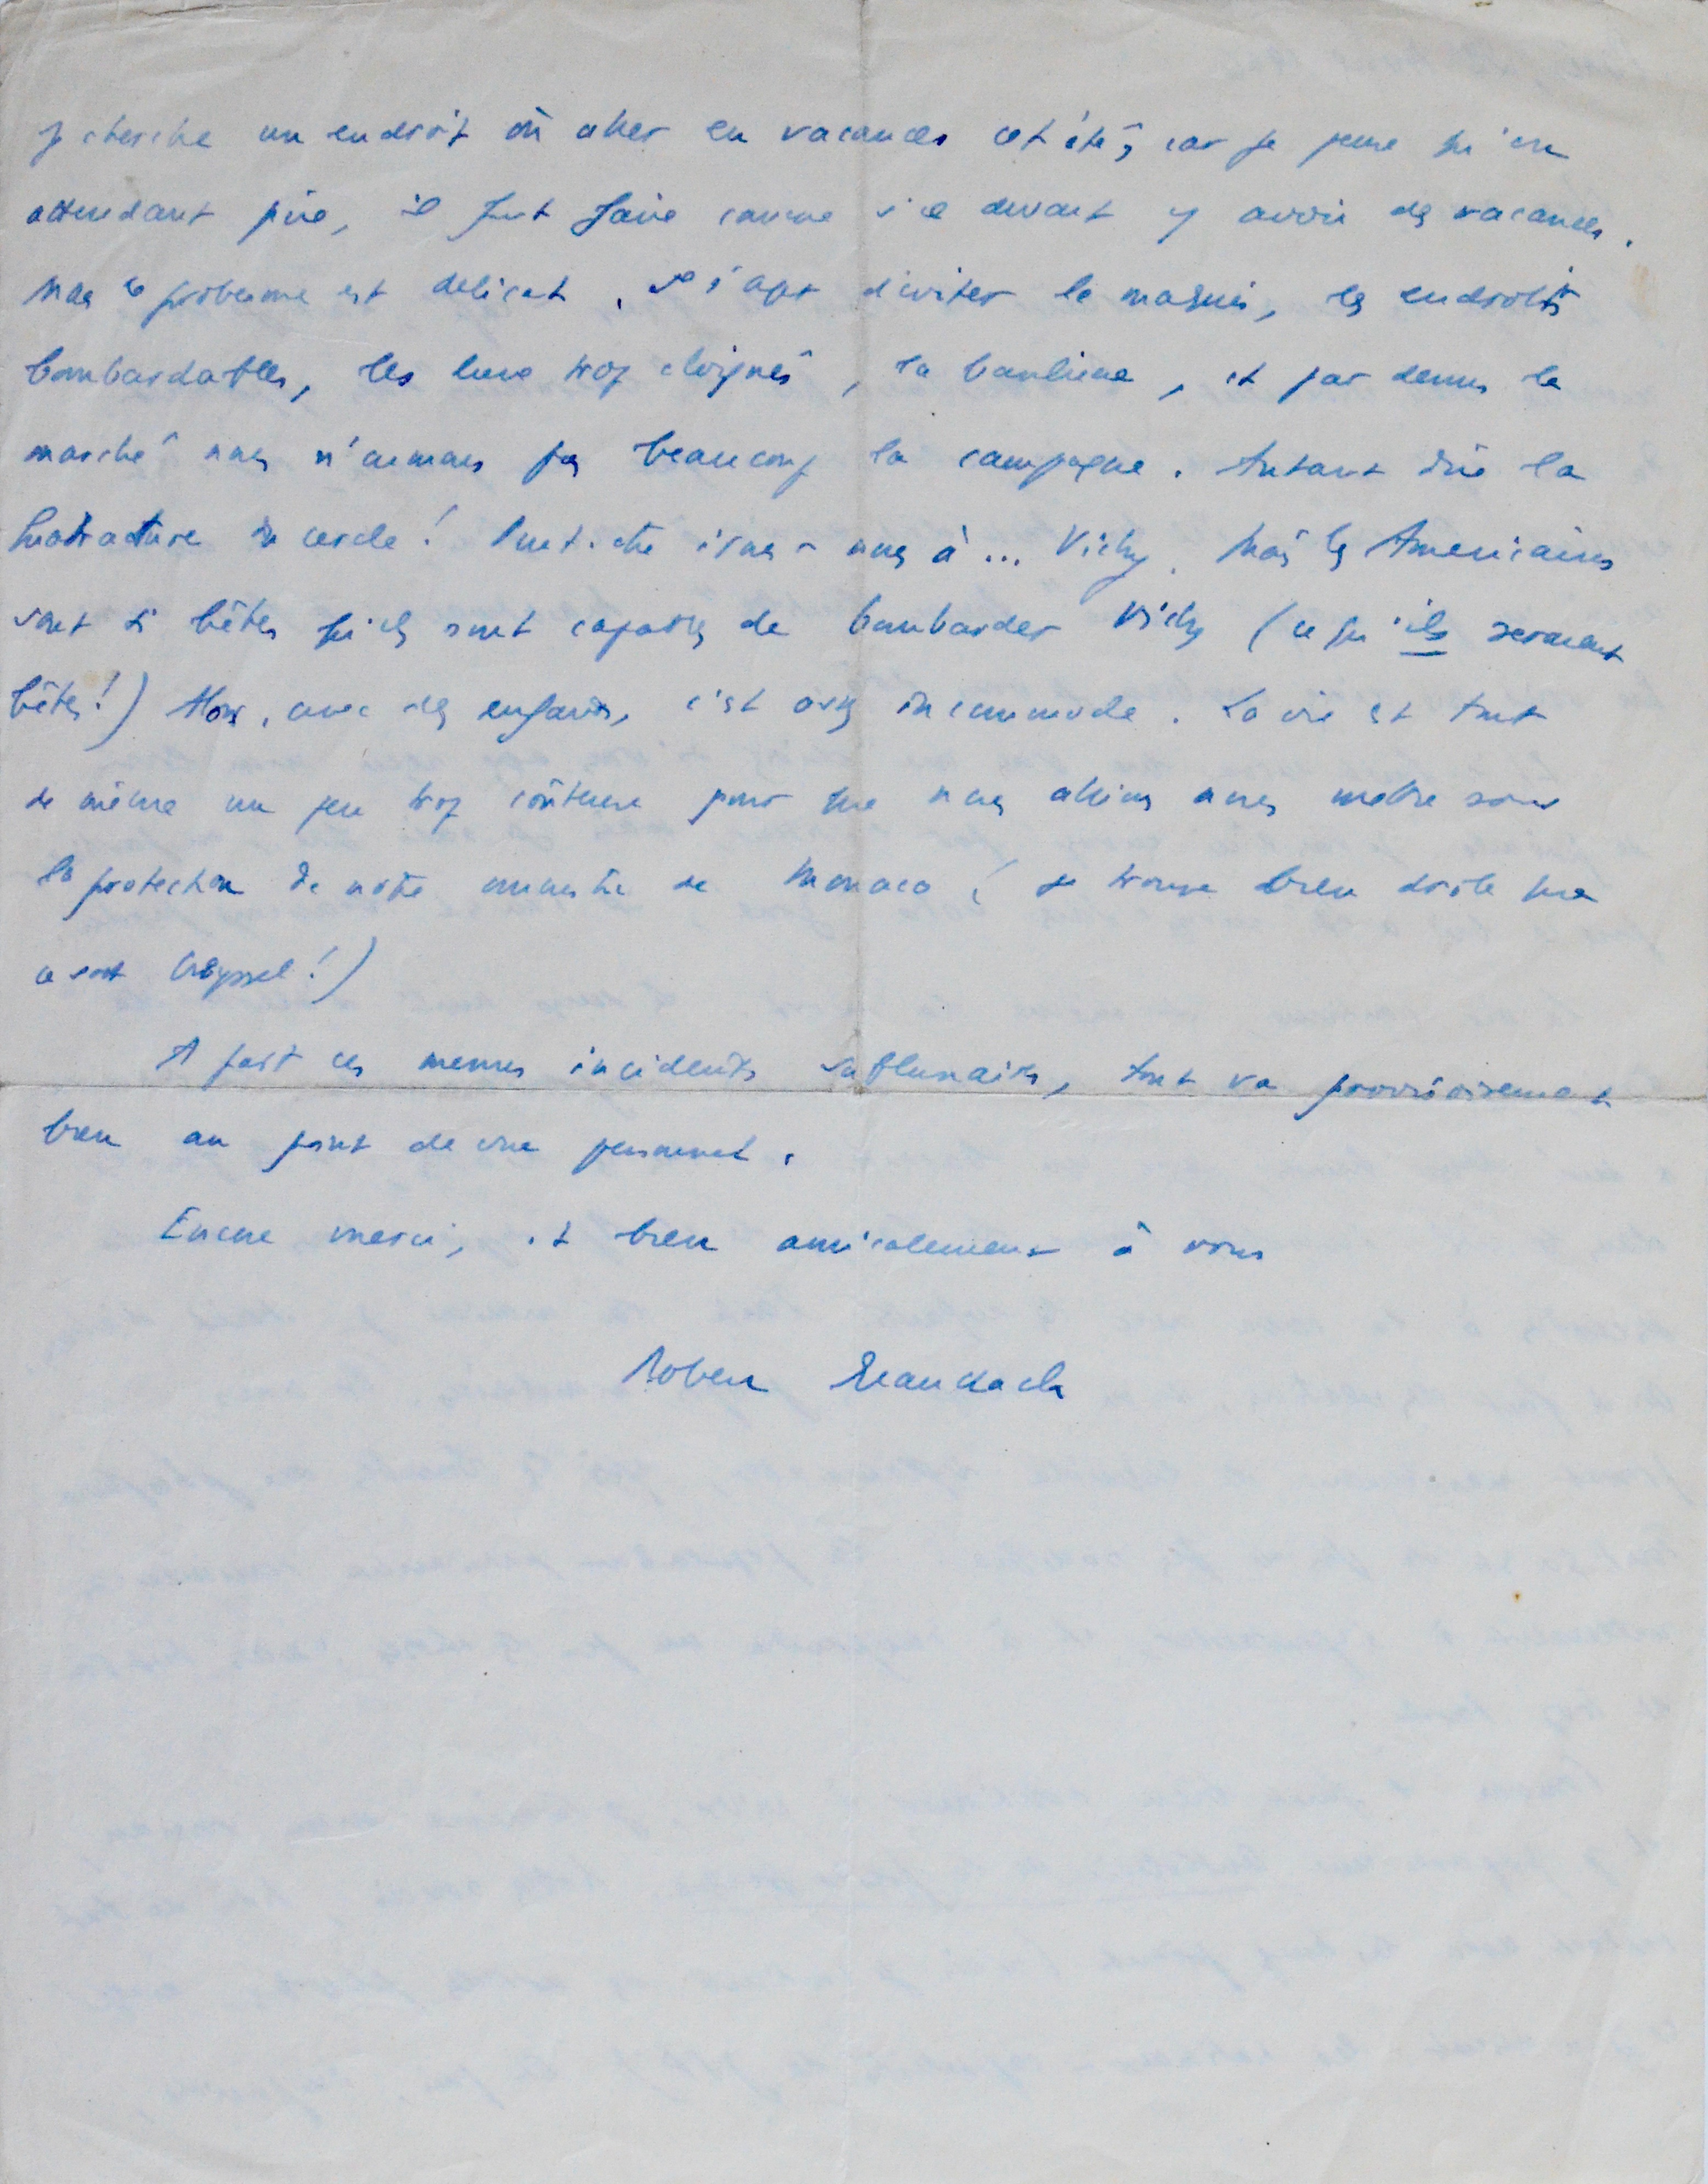 Je cherche un endroit où aller en vacances cet été, car je pense qu'en
attendant pire, il faut faire comme s'il devait y avoir des vacances.
Mais le problème est délicat. Il s'agit d'éviter le maquis, les endroits
bombardables, les lieux trop éloignés, la banlieue, et par dessus le
marché nous n'aimons pas beaucoup la campagne. Autant dire la
quadrature du cercle ! Peut-être irons-nous à... Vichy. Mais les Américains
sont si bêtes qu'ils sont capables de bombarder Vichy (ce qu'ils seraient
bêtes !) Alors, avec des enfants, c'est assez incommode. La vie est tout
de même un peu trop coûteuse pour que nous allions nous mettre sous
la protection de notre ministre de Monaco (je trouve bien drôle que
ce soit Creyssel !)
A part ces menus incidents sublunaires, tout va provisoirement
bien au point de vue personnel.
Encore merci, et bien amicalement à vous
Robert